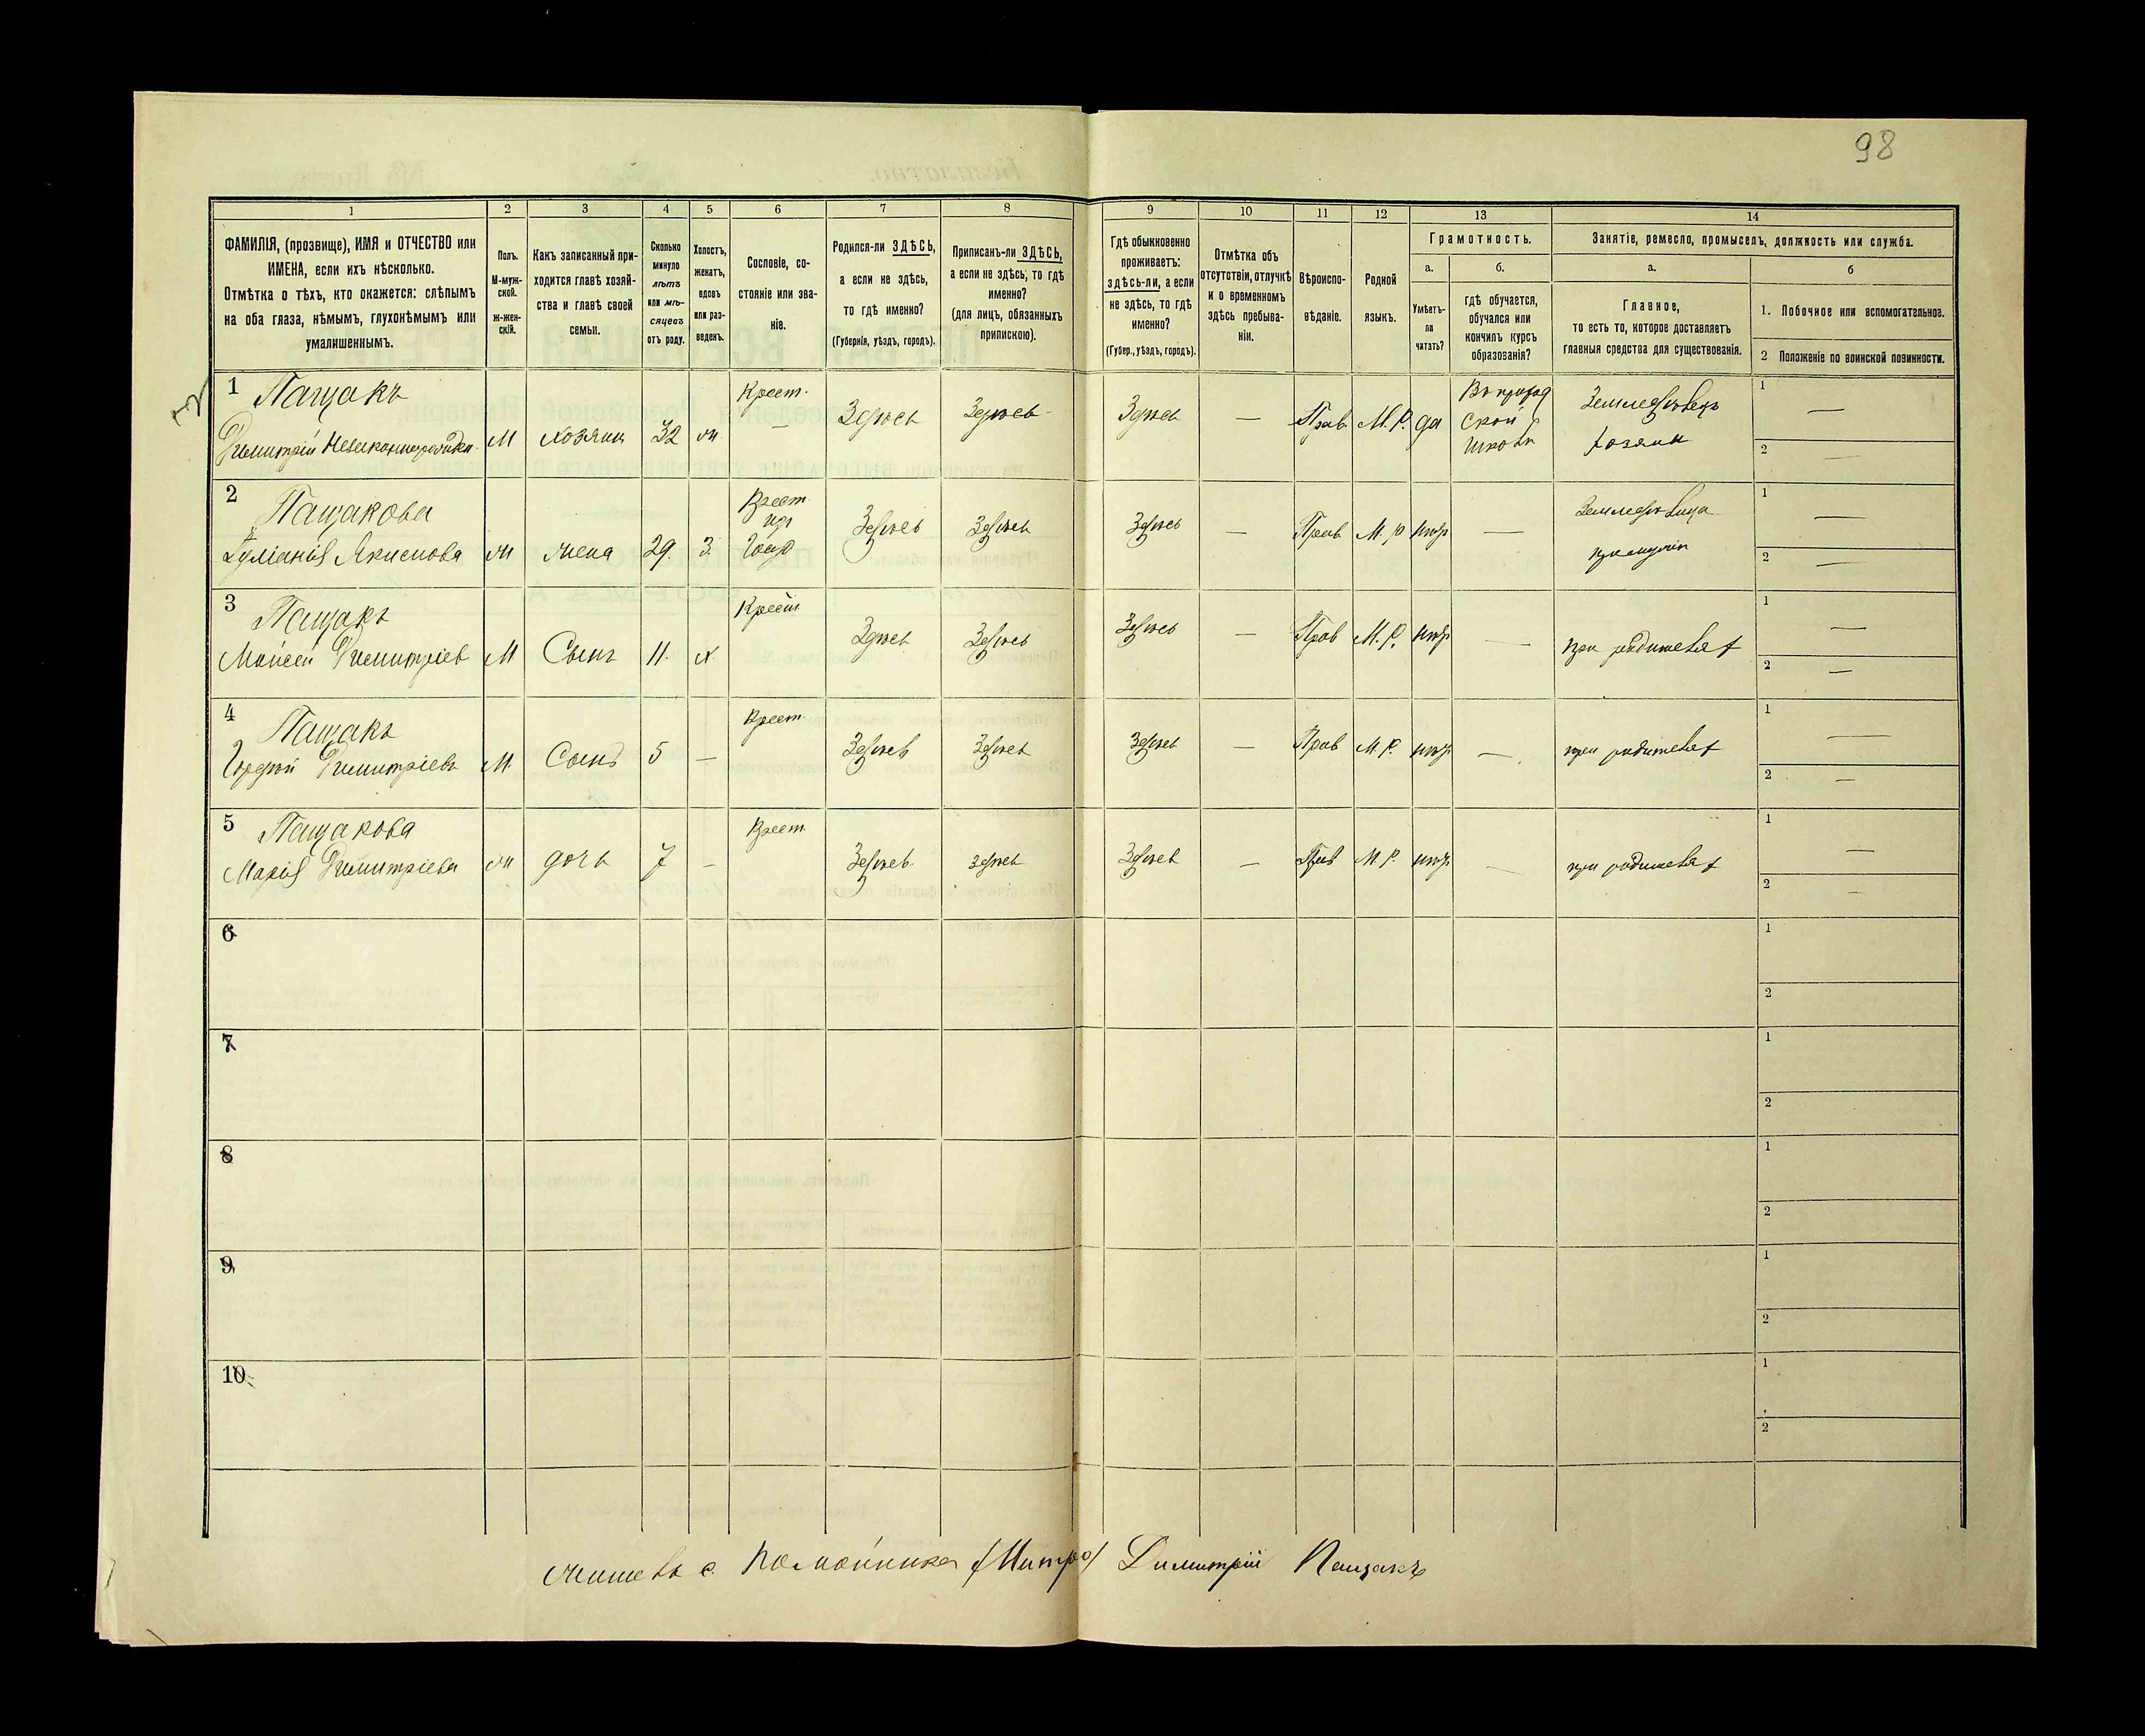 98
1 2 3 4 5 6 7 8 9 10 11 12 13 14
ФАМИЛІЯ, (прозвище), ИМЯ и ОТЧЕСТВО или
ИМЕНА, если ихъ нѣсколько.
Отмѣтка о тѣхъ, кто окажется: слѣпымъ
на оба глаза, нѣмымъ, глухонѣмымъ или
умалишеннымъ.
Полъ.
М-муж-
ской.
ж-жен-
скій.
Какъ записанный при-
ходится главѣ хозяй-
ства и главѣ своей
семьи.
Сколько
минуло
лѣтъ
или мѣ-
сяцевъ
отъ роду.
Холостъ,
женатъ,
вдовъ
или раз-
веденъ.
Сословіе, со-
стояніе или зва-
ніе.
Родился-ли ЗДѢСЬ,
а если не здѣсь,
то гдѣ именно?
(Губернія, уѣздъ, городъ).
Приписанъ-ли ЗДѢСЬ,
а если не здѣсь, то гдѣ
именно?
(для лицъ, обязанныхъ
припискою).
Гдѣ обыкновенно
проживаетъ:
здѣсь-ли, а если
не здѣсь, то гдѣ
именно?
(Губер., уѣздъ, городъ).
Отмѣтка объ
отсутствіи, отлучкѣ
и о временномъ
здѣсь пребыва-
ніи.
Вѣроиспо-
вѣданіе.
Родной
языкъ.
Грамотность.
а.
Умѣетъ-
ли
читать?
б.
гдѣ обучается,
обучался или
кончилъ курсъ
образованія?
Занятіе, ремесло, промыселъ, должность или служба.
а.
Главное,
то есть то, которое доставляетъ
главныя средства для существованія.
б
1. Побочное или вспомогательное.
2 Положеніе по воинской повинности.
1 Пащакъ
Димитрій М хозяинъ 32 ж. Крест. — Здѣсь Здѣсь Здѣсь — Прав. М.Р. да
ской
школѣ
Земледѣлецъ
хозяинъ
1 —
2 —
2 Пащакова
Іуліанія Якимова ж жена 29. З. Крест. Здѣсь Здѣсь Здѣсь — Прав М.р нѣтъ —
1 —
2 —
3 Пащакъ
Моисей Димитріев М Сынъ 11. х. Крест Здѣсь Здѣсь Здѣсь — Прав М.Р. нѣтъ — при родителях
1 —
2 —
4 Пащакъ
Гордѣй Димитріевъ М Сынъ 5 — Крест. Здѣсь Здѣсь Здѣсь — Прав М.Р. нѣтъ — при родителях
1 —
2 —
5 Пащакова
Марія Димитріева ж дочь 7 — Крест Здѣсь Здѣсь Здѣсь — Прав М.Р. нѣтъ — при родителях
1 —
2 —
6 1
2
7 1
2
8 1
2
9 1
2
10 1
2
житель с. Помойника (Митро) Димитрій Пащакъ